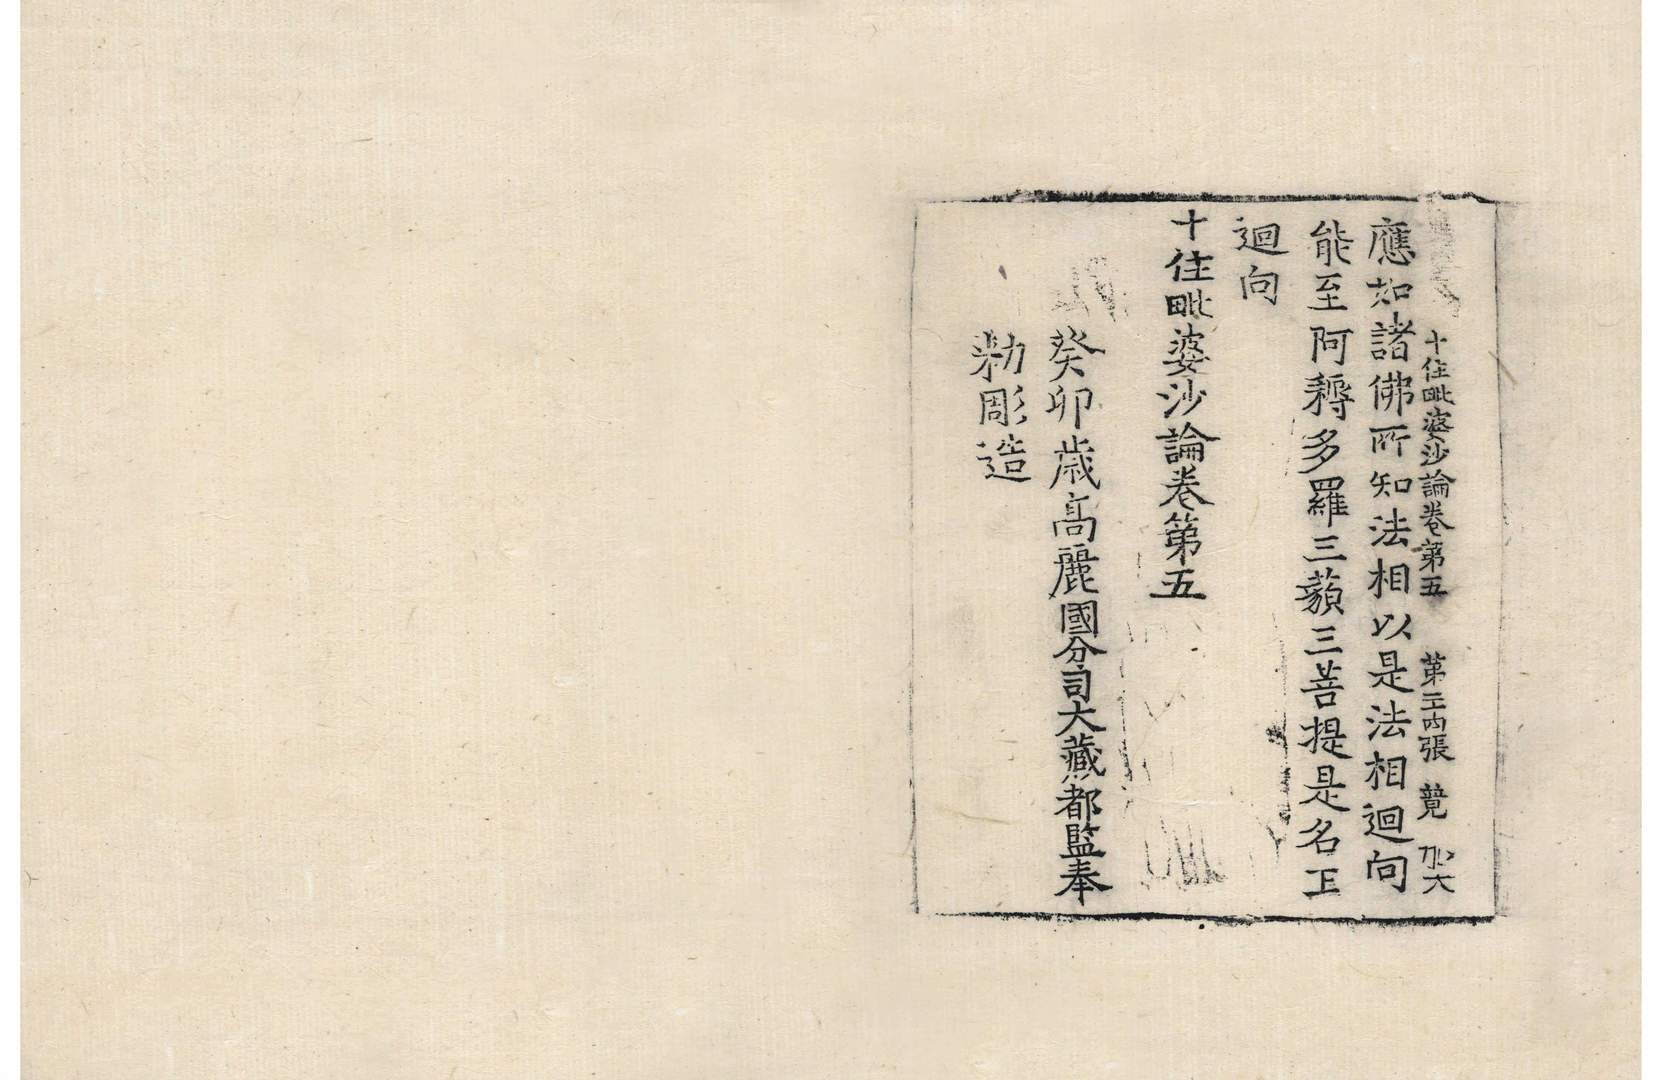 十住毗婆沙論卷第五 第二十丙張 竟
應如諸佛所知法相以是法相迴向
能至阿耨多羅三藐三菩提是名正
迴向
十住毗婆沙論卷第五
癸卯歲高麗國分司大藏都監奉
勅彫造